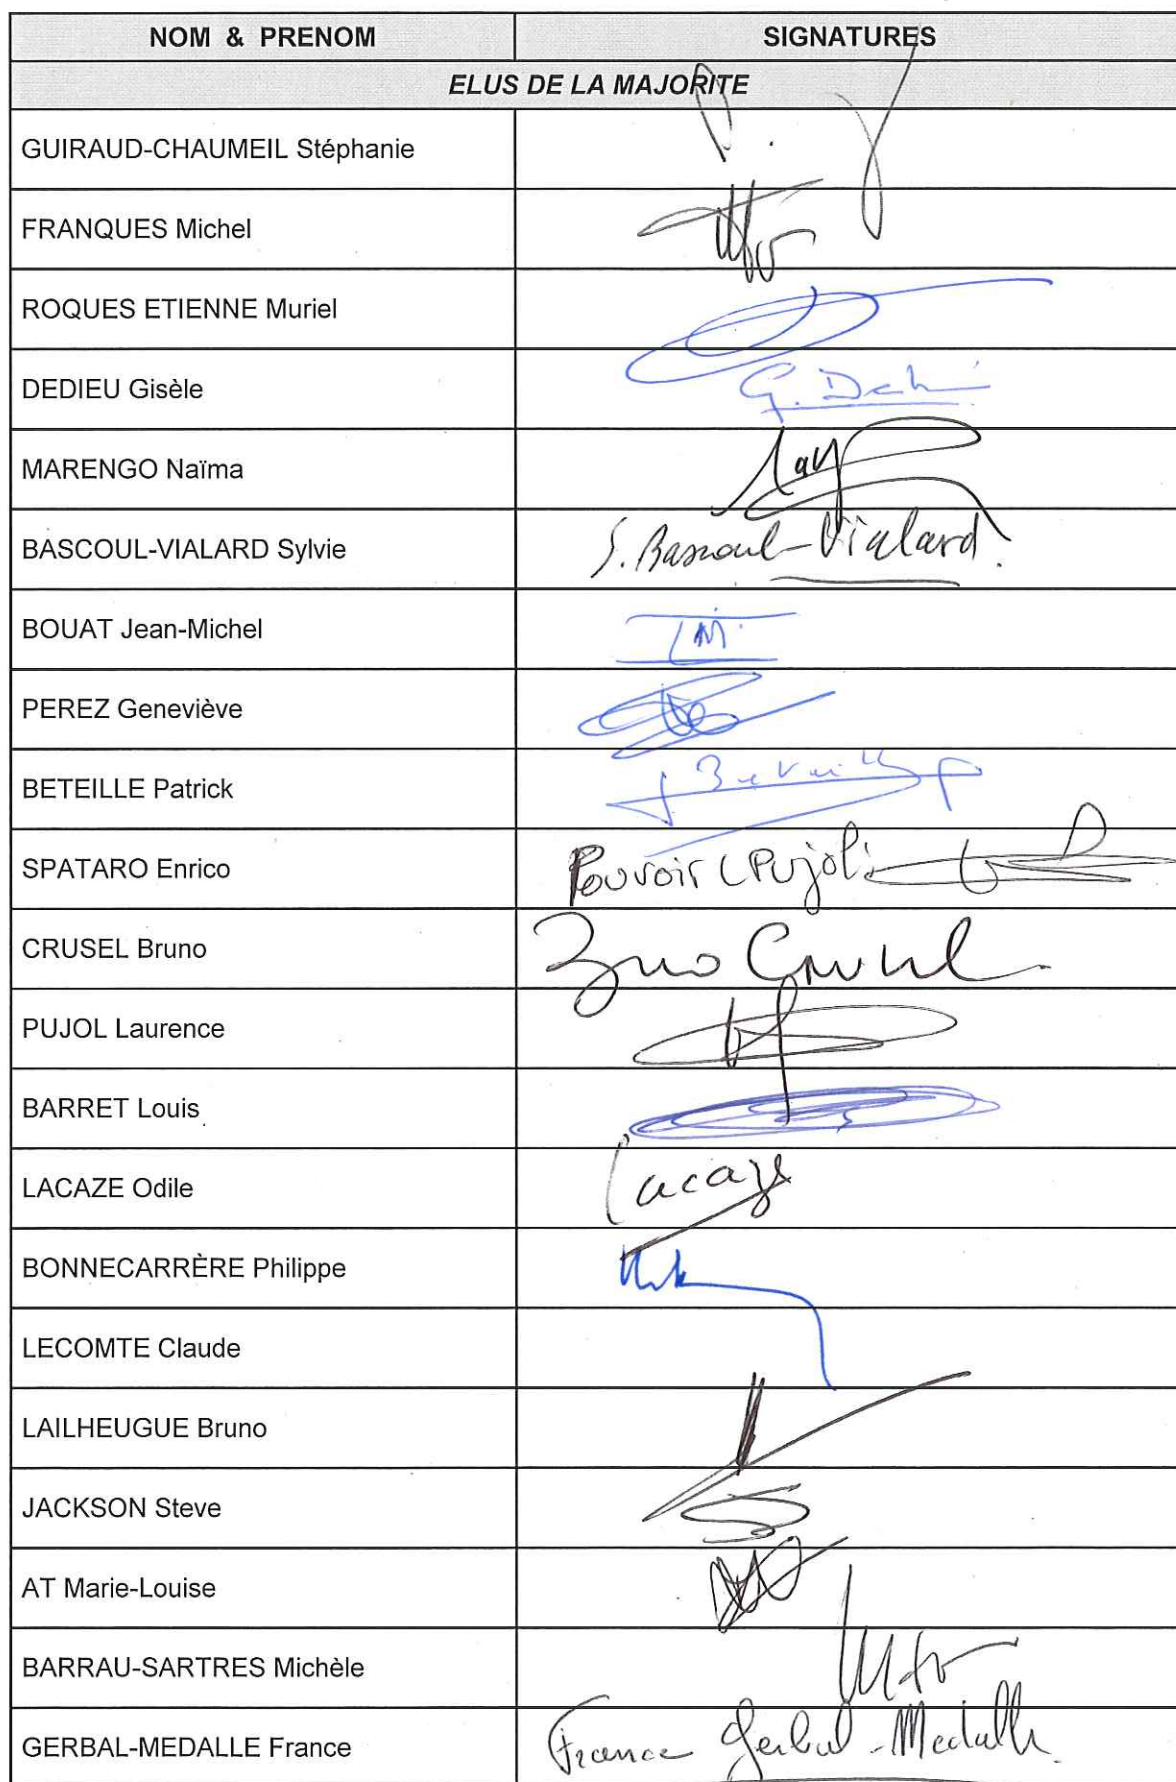 NOM & PRENOM SIGNATURES
ELUS DE LA MAJORITE
GUIRAUD-CHAUMEIL Stéphanie
FRANQUES Michel
ROQUES ETIENNE Muriel
DEDIEU Gisèle G. Dedi
MARENGO Naïma
BASCOUL-VIALARD Sylvie S. Bascoul-Vialard.
BOUAT Jean-Michel
PEREZ Geneviève
BETEILLE Patrick
SPATARO Enrico Pouvoir L Pujol
CRUSEL Bruno Bruno Crusel
PUJOL Laurence
BARRET Louis
LACAZE Odile Lacaze
BONNECARRÈRE Philippe
LECOMTE Claude
LAILHEUGUE Bruno
JACKSON Steve
AT Marie-Louise
BARRAU-SARTRES Michèle
GERBAL-MEDALLE France France Gerbal-Medalle